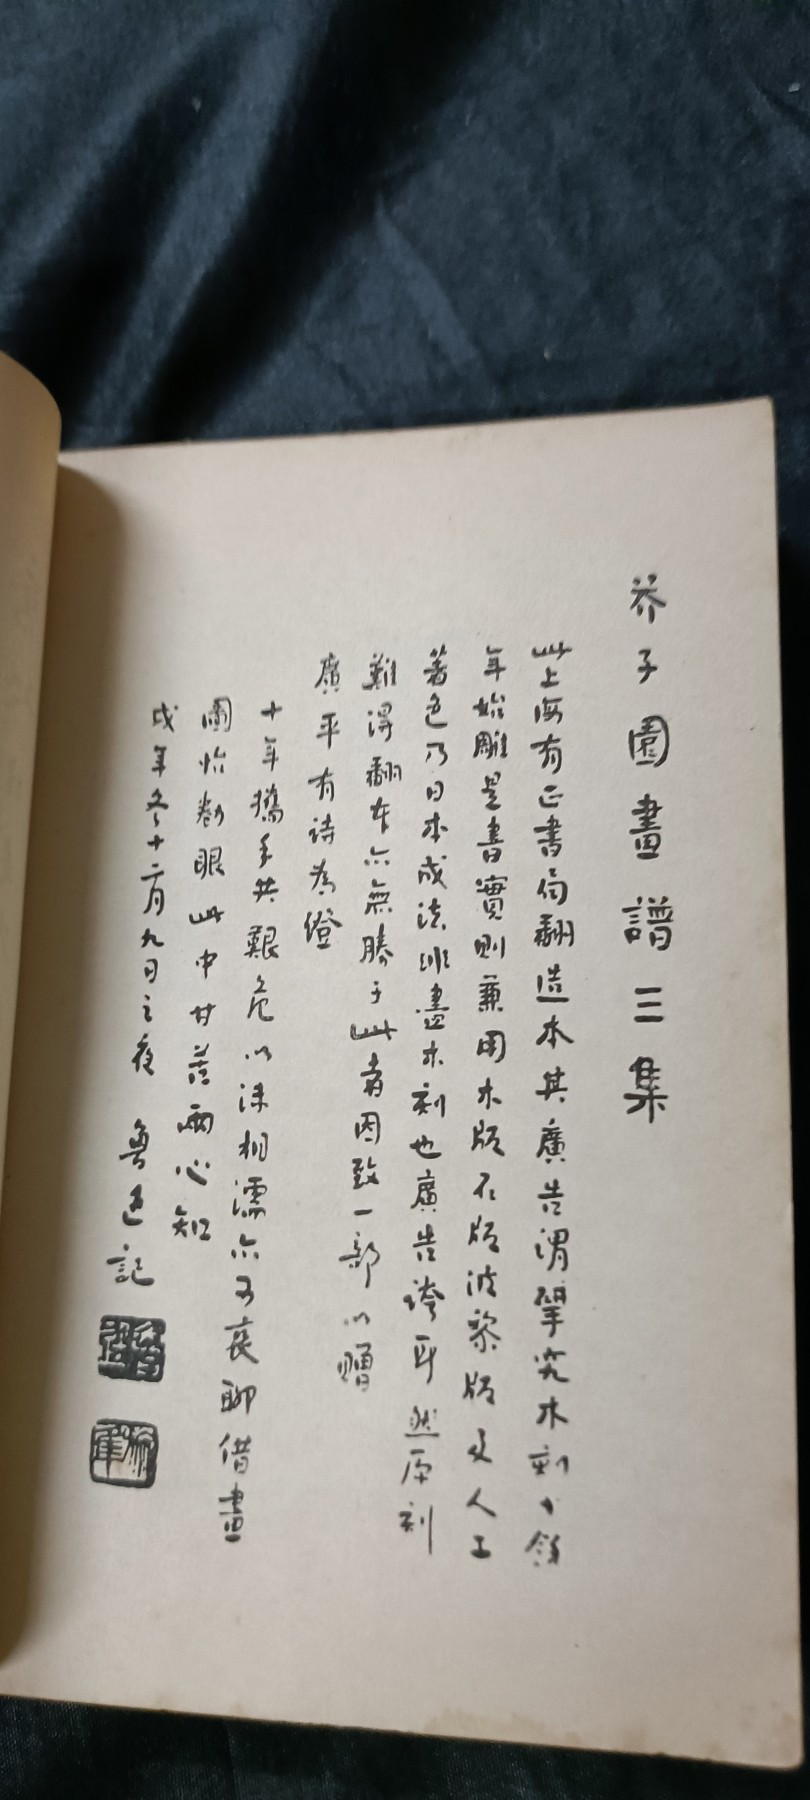 芥子園畫譜三集
此上海有正書局翻造本其廣告謂研究木刻十餘
年始雕是書實則兼用木版石版波黎版及人工
著色乃日本成法非盡木刻也廣告誇耳然原刻
難得翻本亦無勝于此者因致一部以贈
廣平有詩為證
十年攜手共艱危以沫相濡亦可哀聊借畫
圖怡倦眼此中甘苦兩心知
戌年冬十二月九日之夜 魯迅記
魯迅